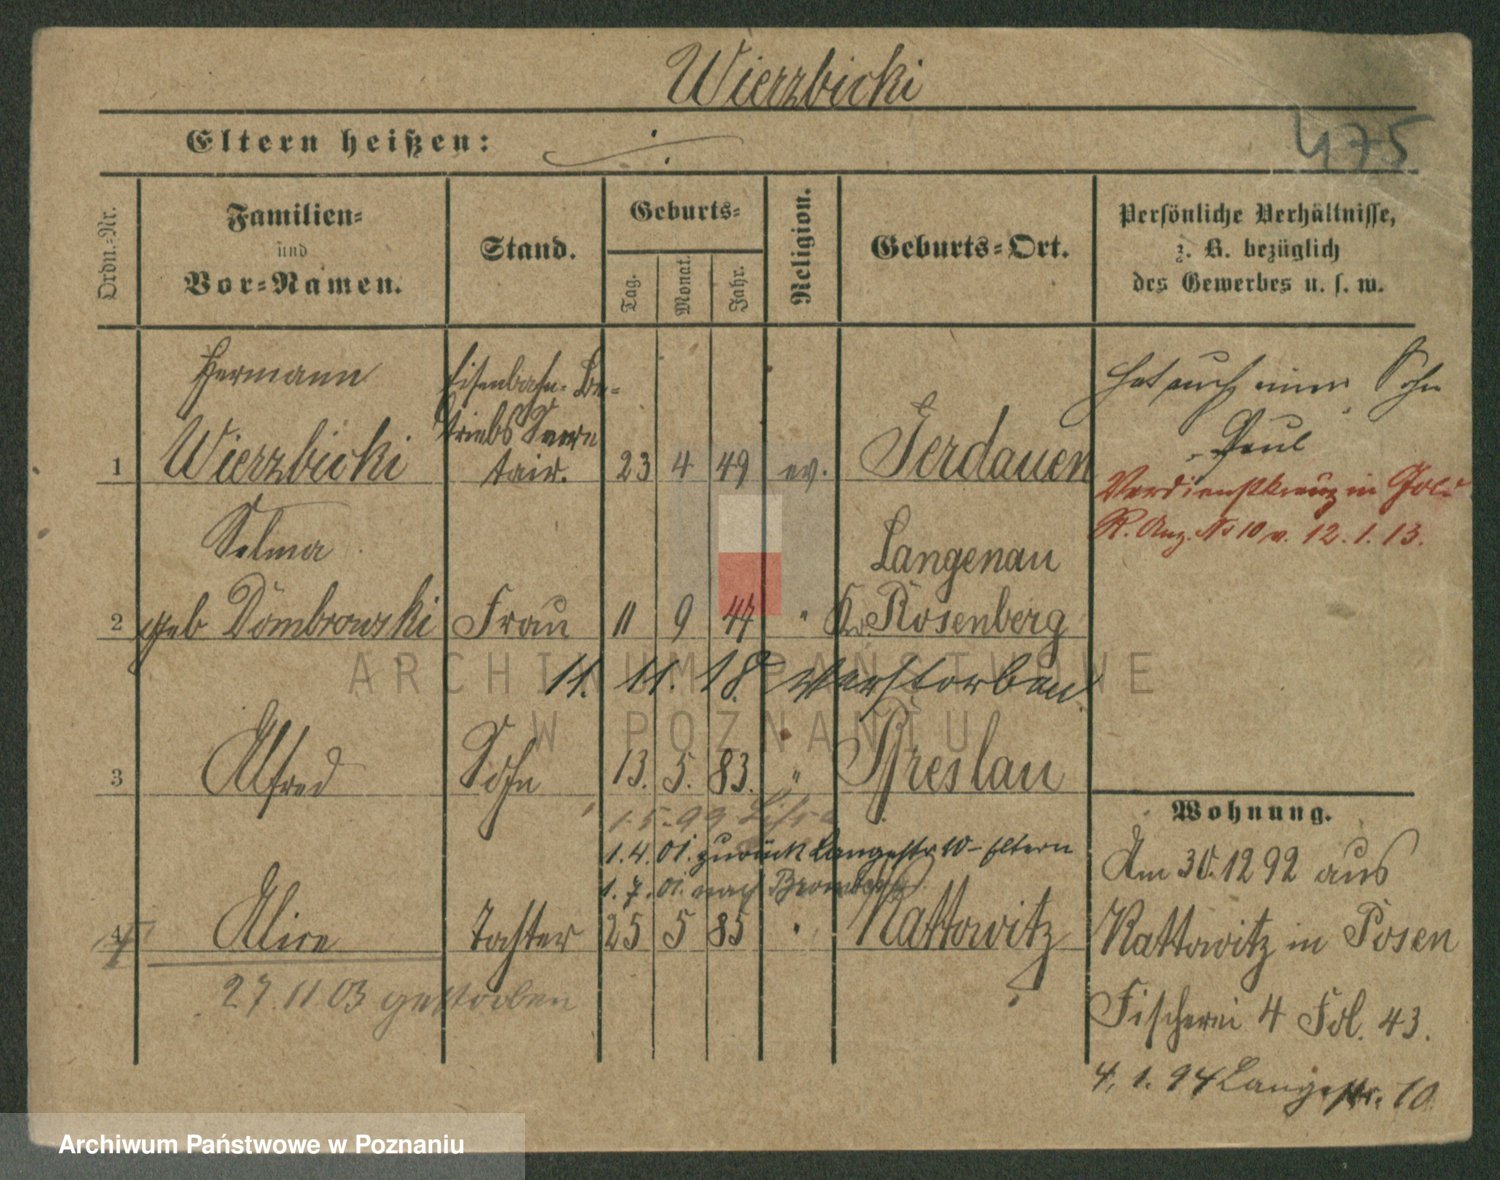 Wierzbicki
Eltern heißen:
475
Ordn.-Nr.
Familien-
und
Vor-Namen.
Stand.
Geburts-
Tag.
Monat.
Jahr.
Religion.
Geburts-Ort.
Persönliche Verhältnisse,
z. B. bezüglich
des Gewerbes u. s. w.
Hermann
Eisenbahn-Be-
triebs Secre
tair.
1 Wierzbicki 23 4 49 ev. Gerdauen
Hat auch einen Sohn
Paul
Verdienstkreuz in Gold
R. Anz. No 10 v. 12.1.13.
Selma
Langenau
2 geb Dombrowski Frau 11 9 47 " Kr. Rosenberg
11. 11. 18. verstorben.
3 Alfred Sohn 13. 5. 83. " Breslau
1.5.99
1.4.01. zurück Langestr 10 - Eltern
1.7.01. nach Bromberg
4 Alice Tochter 25 5 85 " Kattowitz
27.11.03 gestorben
Wohnung.
Am 30.12 92 aus
Kattowitz in Posen
Fischerei 4 Fol. 43.
4.1.94 Langestr. 10
ARCHIWUM PAŃSTWOWE
W POZNANIU
Archiwum Państwowe w Poznaniu